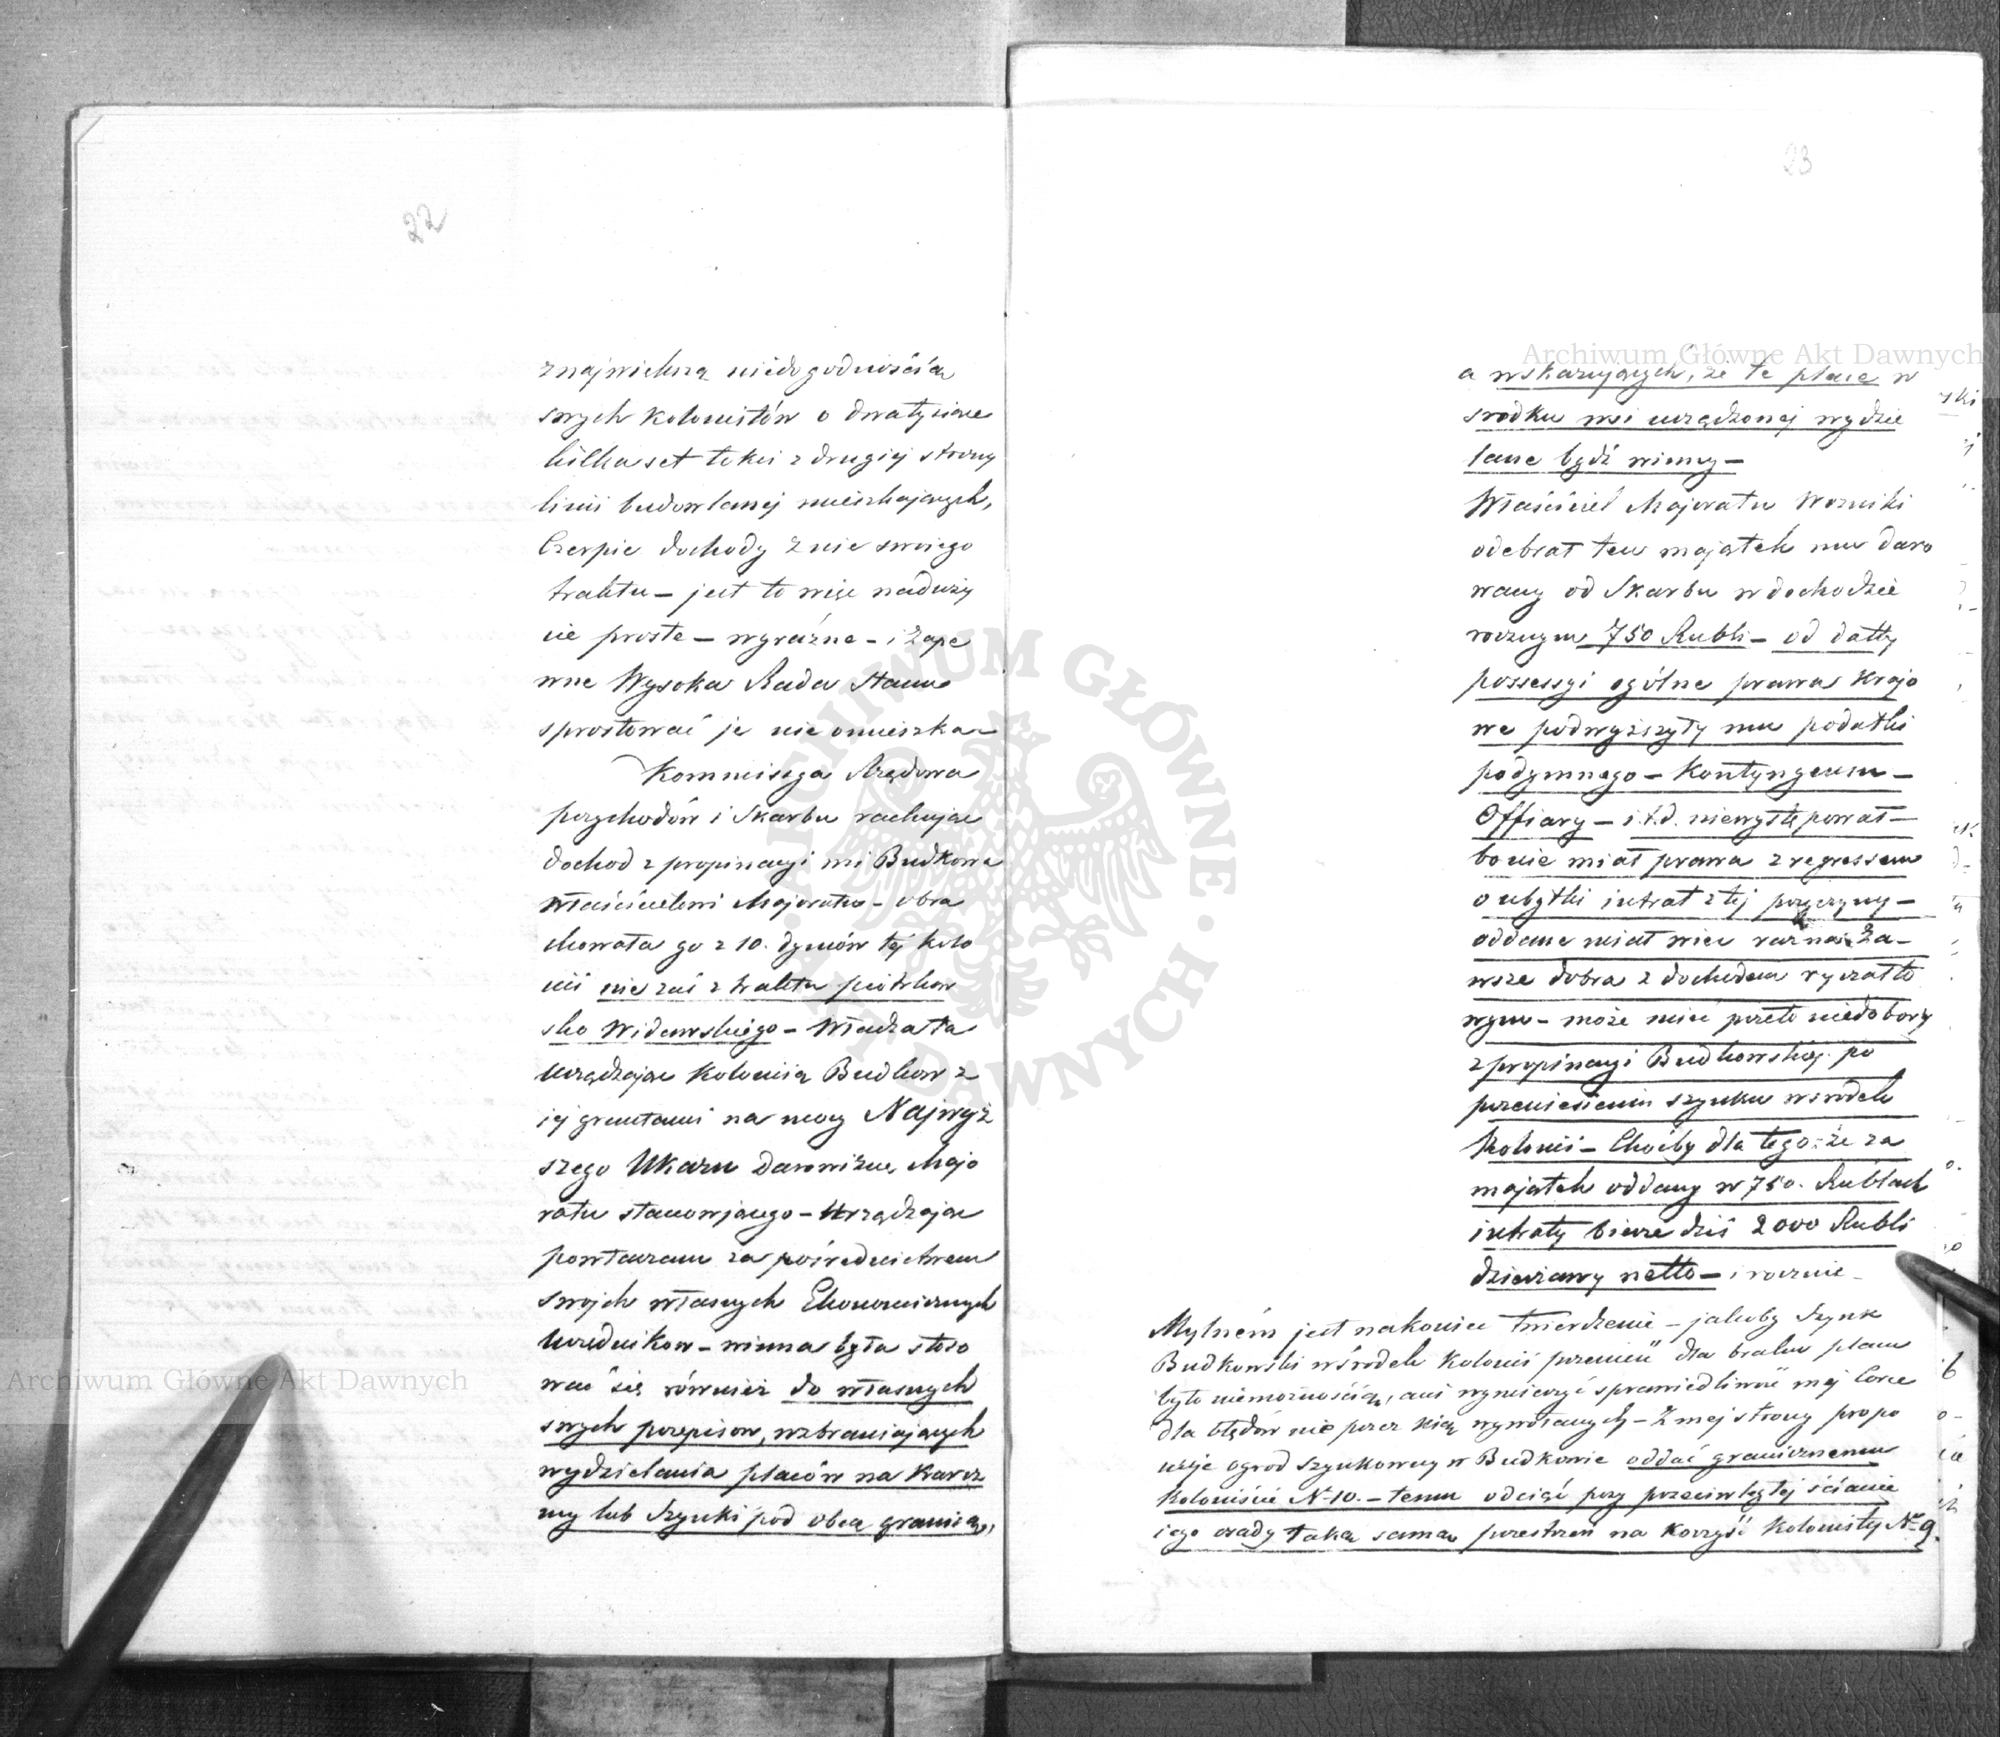 22
z największą niedogodnością
swych kolonistów o dwatysiące
kilkaset łokci z drugiej strony
linii budowlanej mieszkających,
Czerpie dochody z nie swoiego
traktu – jest to więc naduży
cie proste – wyraźne – i zape
wne Wysoka Rada Stanu
sprostować je nie omieszka
Kommissya Rządowa
przychodów i Skarbu rachując
dochod z propinacyi wsi Budkowa
Właścicielowi Majoratu – obra
chowała go z 10. dymów tej kolo
nii nie zaś z traktu piotrkow
sko Widawskiego – Władza ta
urządzając kolonią Budkow z
jej gruntami na mocy Najwyż
szego Ukazu Darowiznę Majo
ratu stanowiącego – Urządzając
powtarzam za pośrednictwem
swojch własnych Ekonomicznych
Urzędnikow – winna była stoso
wać się również do własnych
swych przepisow, wzbraniających
wydzielania placów na Karcz
my lub Szynki pod obcą granicą,
23
a wskazujących, że te place w
srodku wsi urządzonej wydzie
lane bydź winny –
Właściciel Majoratu Wozniki
odebrał ten majątek mu daro
wany od Skarbu w dochodzie
rocznym 750 Rubli – od datty
possessyi ogólne prawa Krajo
we podwyższyły mu podatki
podymnego – Kontyngensu –
Offiary – i.t.d. niewystępował –
bo nie miał prawa z regressem
o ubytki intrat z tej przyczyny –
oddane miał więc raz na za –
wsze dobra z dochodem ryczałto
wym – może mieć przeto niedobory
z propinacyi Budkowskiej po
przeniesieniu szynku w środek
Kolonii – Choćby dla tego że za
majątek oddany w 750. Rublach
intraty bierze dziś 2000 Rubli
dzierżawy netto – i rocznie –
Mylném jest nakoniec twierdzenie – jakoby Szynk
Budkowski w środek Kolonii przenieść dla braku placu
było niemożnością, ani wymierzyć sprawiedliwość mej Córce
dla błędów nie przez nią wywołanych – Z mej strony propo
nuje ogrod szynkowny w Budkowie oddać granicznemu
Koloniście N. 10. – temu odciąć przy przeciwległej ścianie
iego osady taką samą przestrzeń na korzyść Kolonisty Nr 9.
Archiwum Główne Akt Dawnych
Archiwum Główne Akt Dawnych
ARCHIWUM GŁÓWNE · AKT DAWNYCH ·